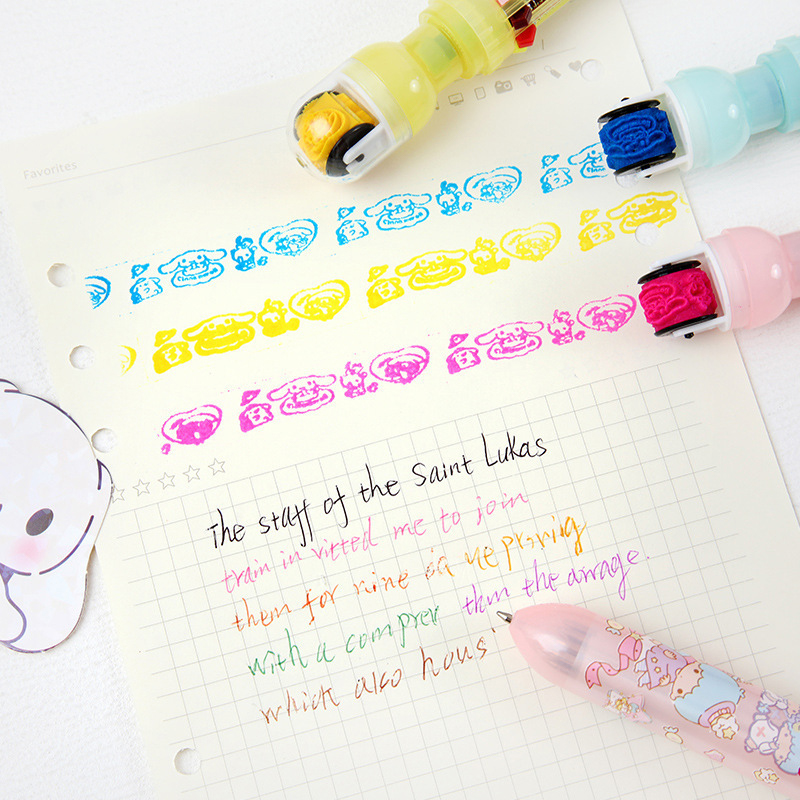 Favorites
The staff of the Saint Lukas
train in vitted me to join
them for nine
with a comprer than the
which also hous